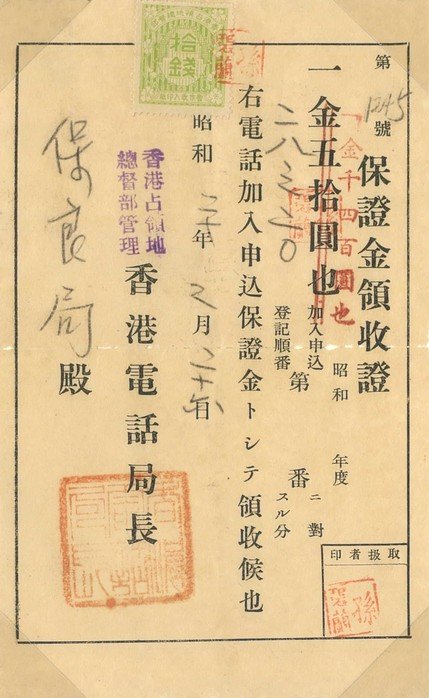 第 1245 號 保證金領收證
一金千四百圓也
昭和 年度
一金五拾圓也
加入申込
登記順番
第 番
ニ對
スル分
右電話加入申込保證金トシテ領收候也
昭和 二十年 月 日
香港占領地
總督部管理
香港電話局長
保良局殿
取扱者印
孫
拾錢